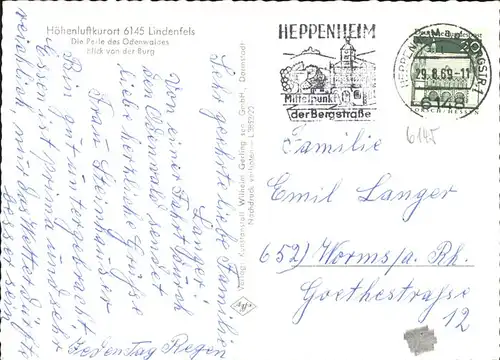 Höhenluftkurort 6145 Lindenfels
Die Perle des Odenwaldes
Blick von der Burg
HEPPENHEIM
Mittelpunkt
der Bergstraße
HEPPENHEIM
29.8.69-11
6148
LORSCH/HESSEN
6145
Sehr geehrte liebe Familie
Langer!
Von einer Fahrt durch
den Odenwald sendet
liebe herzliche Grüsse
Frau Steinhäuser
Bin gut untergebracht
Essen ist prima und sehr
reichlich nur das Wetter dürfte
besser sein
Jedentag Regen
Verlag: Kunstanstalt Wilhelm Gerling sen. GmbH., Darmstadt
Nachdruck verboten
Familie
Emil Langer
652) Worms/a. Rh.
Goethestraße
12